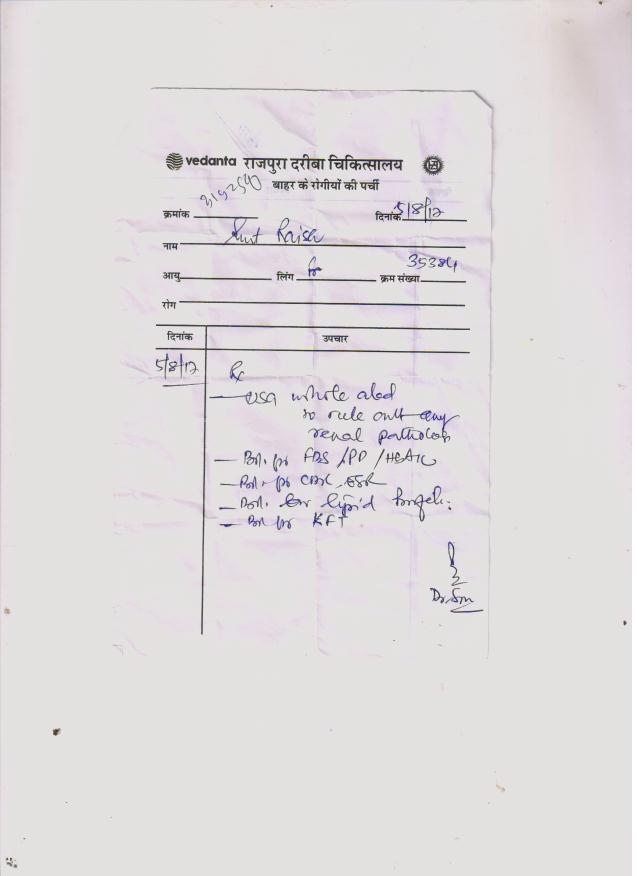 vedanta राजपुरा दरीबा चिकित्सालय
बाहर के रोगीयों की पर्ची
क्रमांक दिनांक 5/8/17
नाम Smt
आयु लिंग क्रम संख्या 35384
रोग
दिनांक उपचार
5/8/17 Rx
— USG whole abd
to rule out any
renal pathology
— Bl. for FBS / PP / HbA1c
— Bl. for CBC, ESR
— Bl. for lipid profile.
— Bl for KFT
Dr.